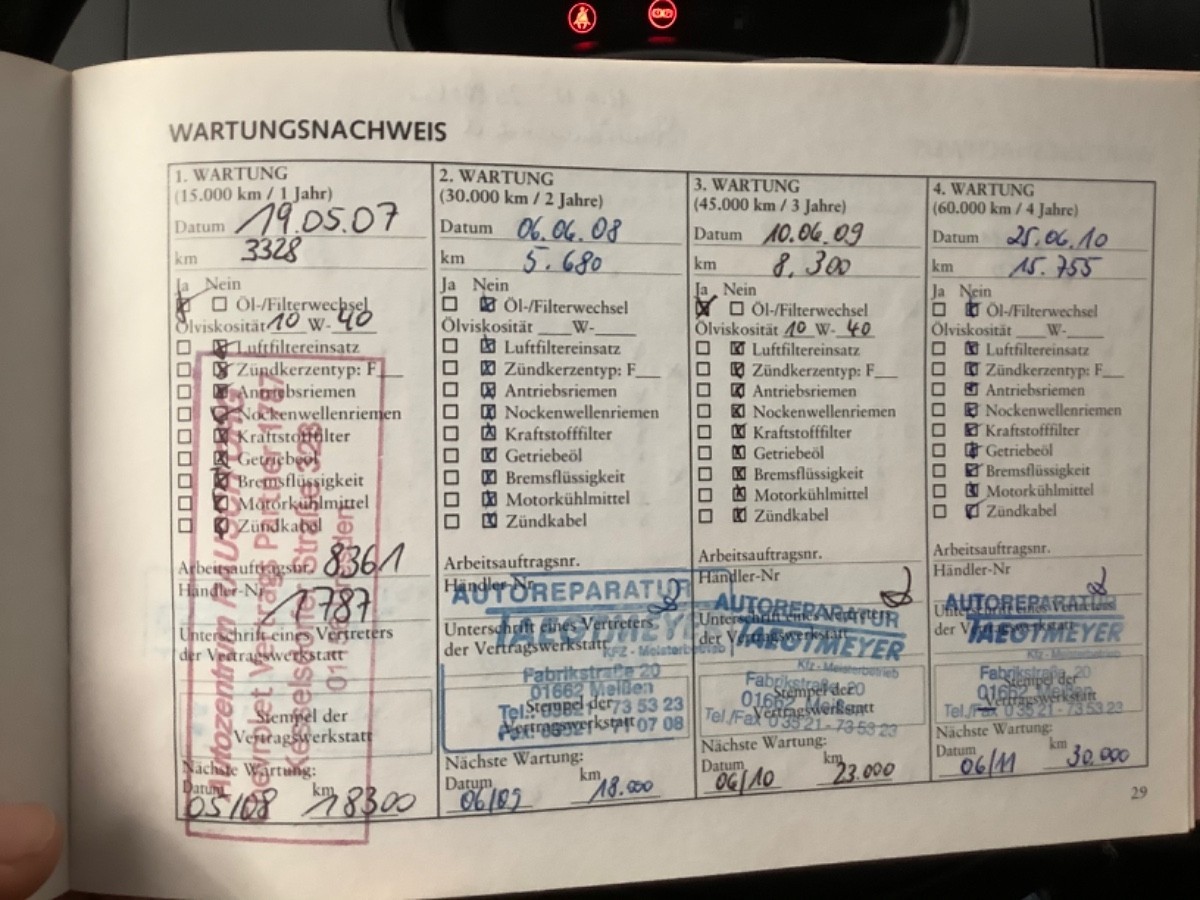 WARTUNGSNACHWEIS
1. WARTUNG
(15.000 km / 1 Jahr)
Datum 19.05.07
km 3328
Ja Nein
Öl-/Filterwechsel
Ölviskosität 10 W- 40
Luftfiltereinsatz
Zündkerzentyp: F
Antriebsriemen
Nockenwellenriemen
Kraftstofffilter
Getriebeöl
Bremsflüssigkeit
Motorkühlmittel
Zündkabel
Arbeitsauftragsnr. 8361
Händler-Nr 1787
Unterschrift eines Vertreters
der Vertragswerkstatt
Stempel der
Vertragswerkstatt
Nächste Wartung:
Datum km
05/08 18300
Autozentrum
Kesselsdorfer Straße 328
2. WARTUNG
(30.000 km / 2 Jahre)
Datum 06.06.08
km 5.680
Ja Nein
Öl-/Filterwechsel
Ölviskosität W-
Luftfiltereinsatz
Zündkerzentyp: F
Antriebsriemen
Nockenwellenriemen
Kraftstofffilter
Getriebeöl
Bremsflüssigkeit
Motorkühlmittel
Zündkabel
Arbeitsauftragsnr.
Händler-Nr
AUTOREPARATUR
TAEGTMEYER
Unterschrift eines Vertreters
der Vertragswerkstatt
KFZ - Meisterbetrieb
Fabrikstraße 20
01662 Meißen
Stempel der
Vertragswerkstatt
Nächste Wartung:
Datum km
06/09 18.000
3. WARTUNG
(45.000 km / 3 Jahre)
Datum 10.06.09
km 8.300
Ja Nein
Öl-/Filterwechsel
Ölviskosität 10 W- 40
Luftfiltereinsatz
Zündkerzentyp: F
Antriebsriemen
Nockenwellenriemen
Kraftstofffilter
Getriebeöl
Bremsflüssigkeit
Motorkühlmittel
Zündkabel
Arbeitsauftragsnr.
Händler-Nr
AUTOREPARATUR
TAEGTMEYER
Unterschrift eines Vertreters
der Vertragswerkstatt
Kfz - Meisterbetrieb
Fabrikstraße 20
01662 Meißen
Tel./Fax 0 35 21 - 73 53 23
Stempel der
Vertragswerkstatt
Nächste Wartung:
Datum km
06/10 23.000
4. WARTUNG
(60.000 km / 4 Jahre)
Datum 25.06.10
km 15.755
Ja Nein
Öl-/Filterwechsel
Ölviskosität W-
Luftfiltereinsatz
Zündkerzentyp: F
Antriebsriemen
Nockenwellenriemen
Kraftstofffilter
Getriebeöl
Bremsflüssigkeit
Motorkühlmittel
Zündkabel
Arbeitsauftragsnr.
Händler-Nr
AUTOREPARATUR
TAEGTMEYER
Unterschrift eines Vertreters
der Vertragswerkstatt
Kfz - Meisterbetrieb
Fabrikstraße 20
01662 Meißen
Tel./Fax 0 35 21 - 73 53 23
Stempel der
Vertragswerkstatt
Nächste Wartung:
Datum km
06/11 30.000
29